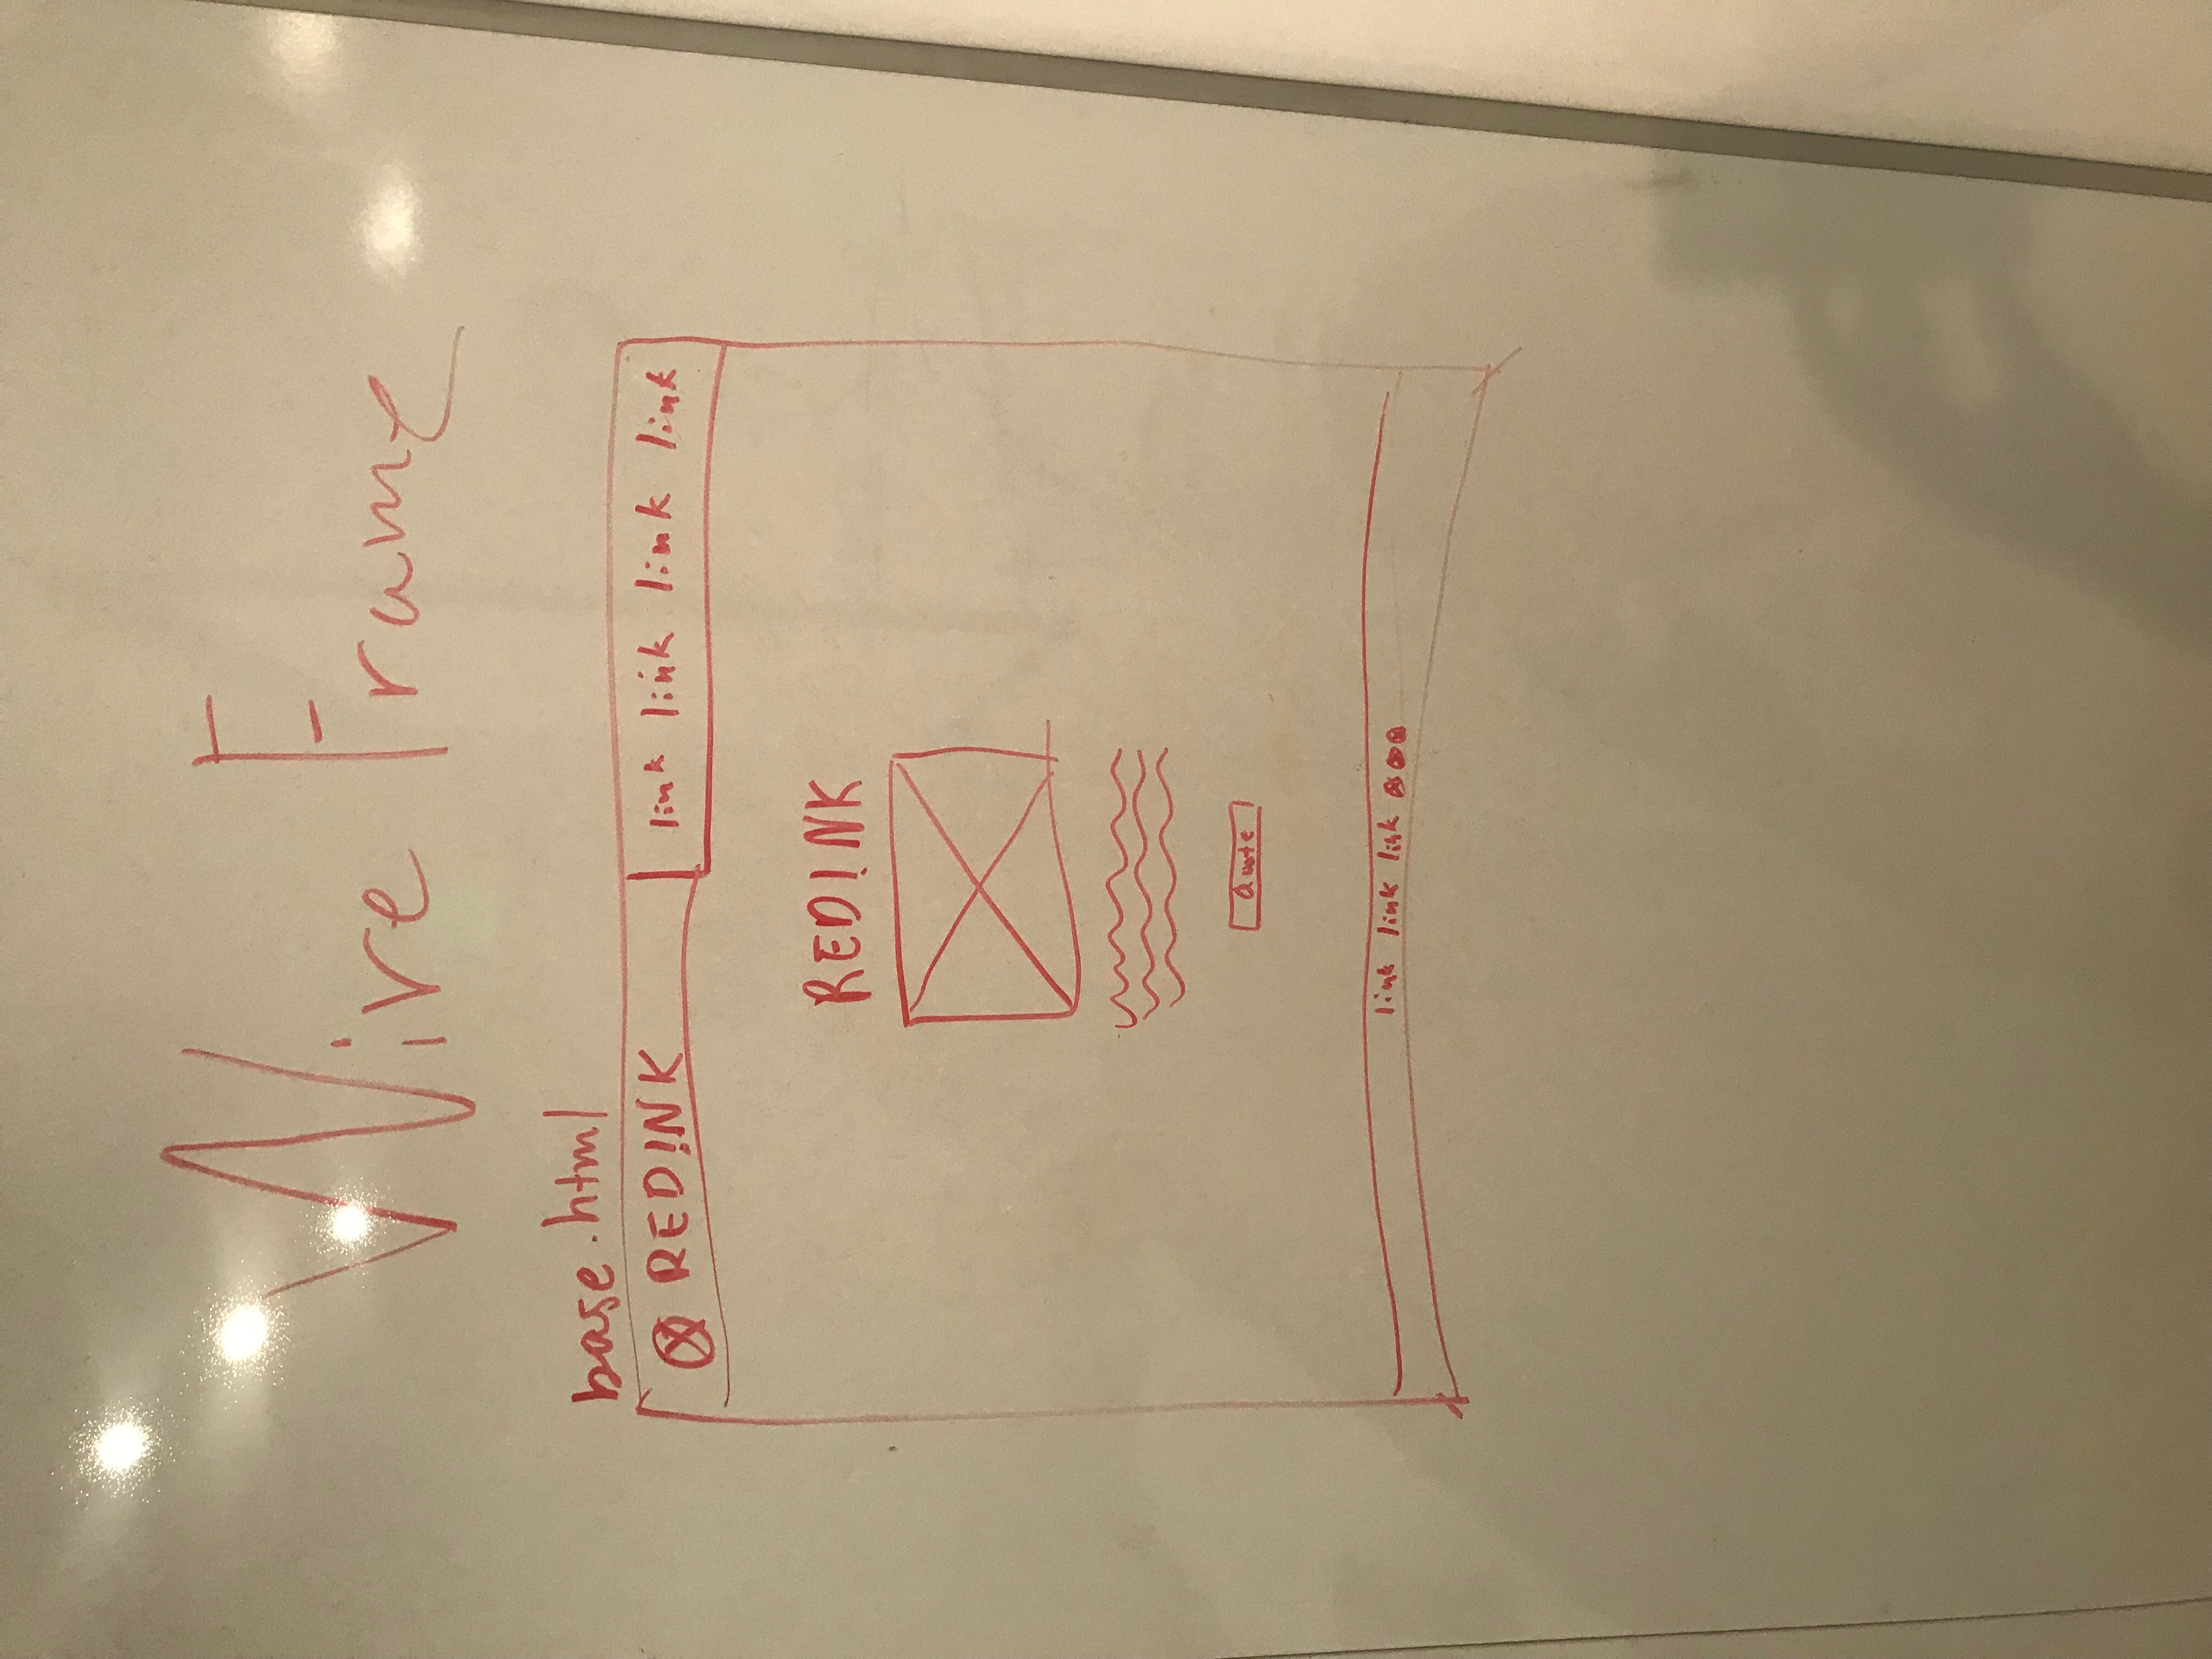 Wire Frame
base.html
RED!NK link link link link
RED!NK
Quote
link link link